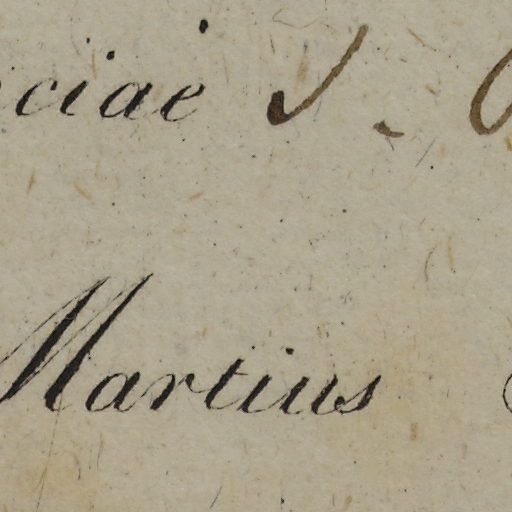 ciae S.
Martius